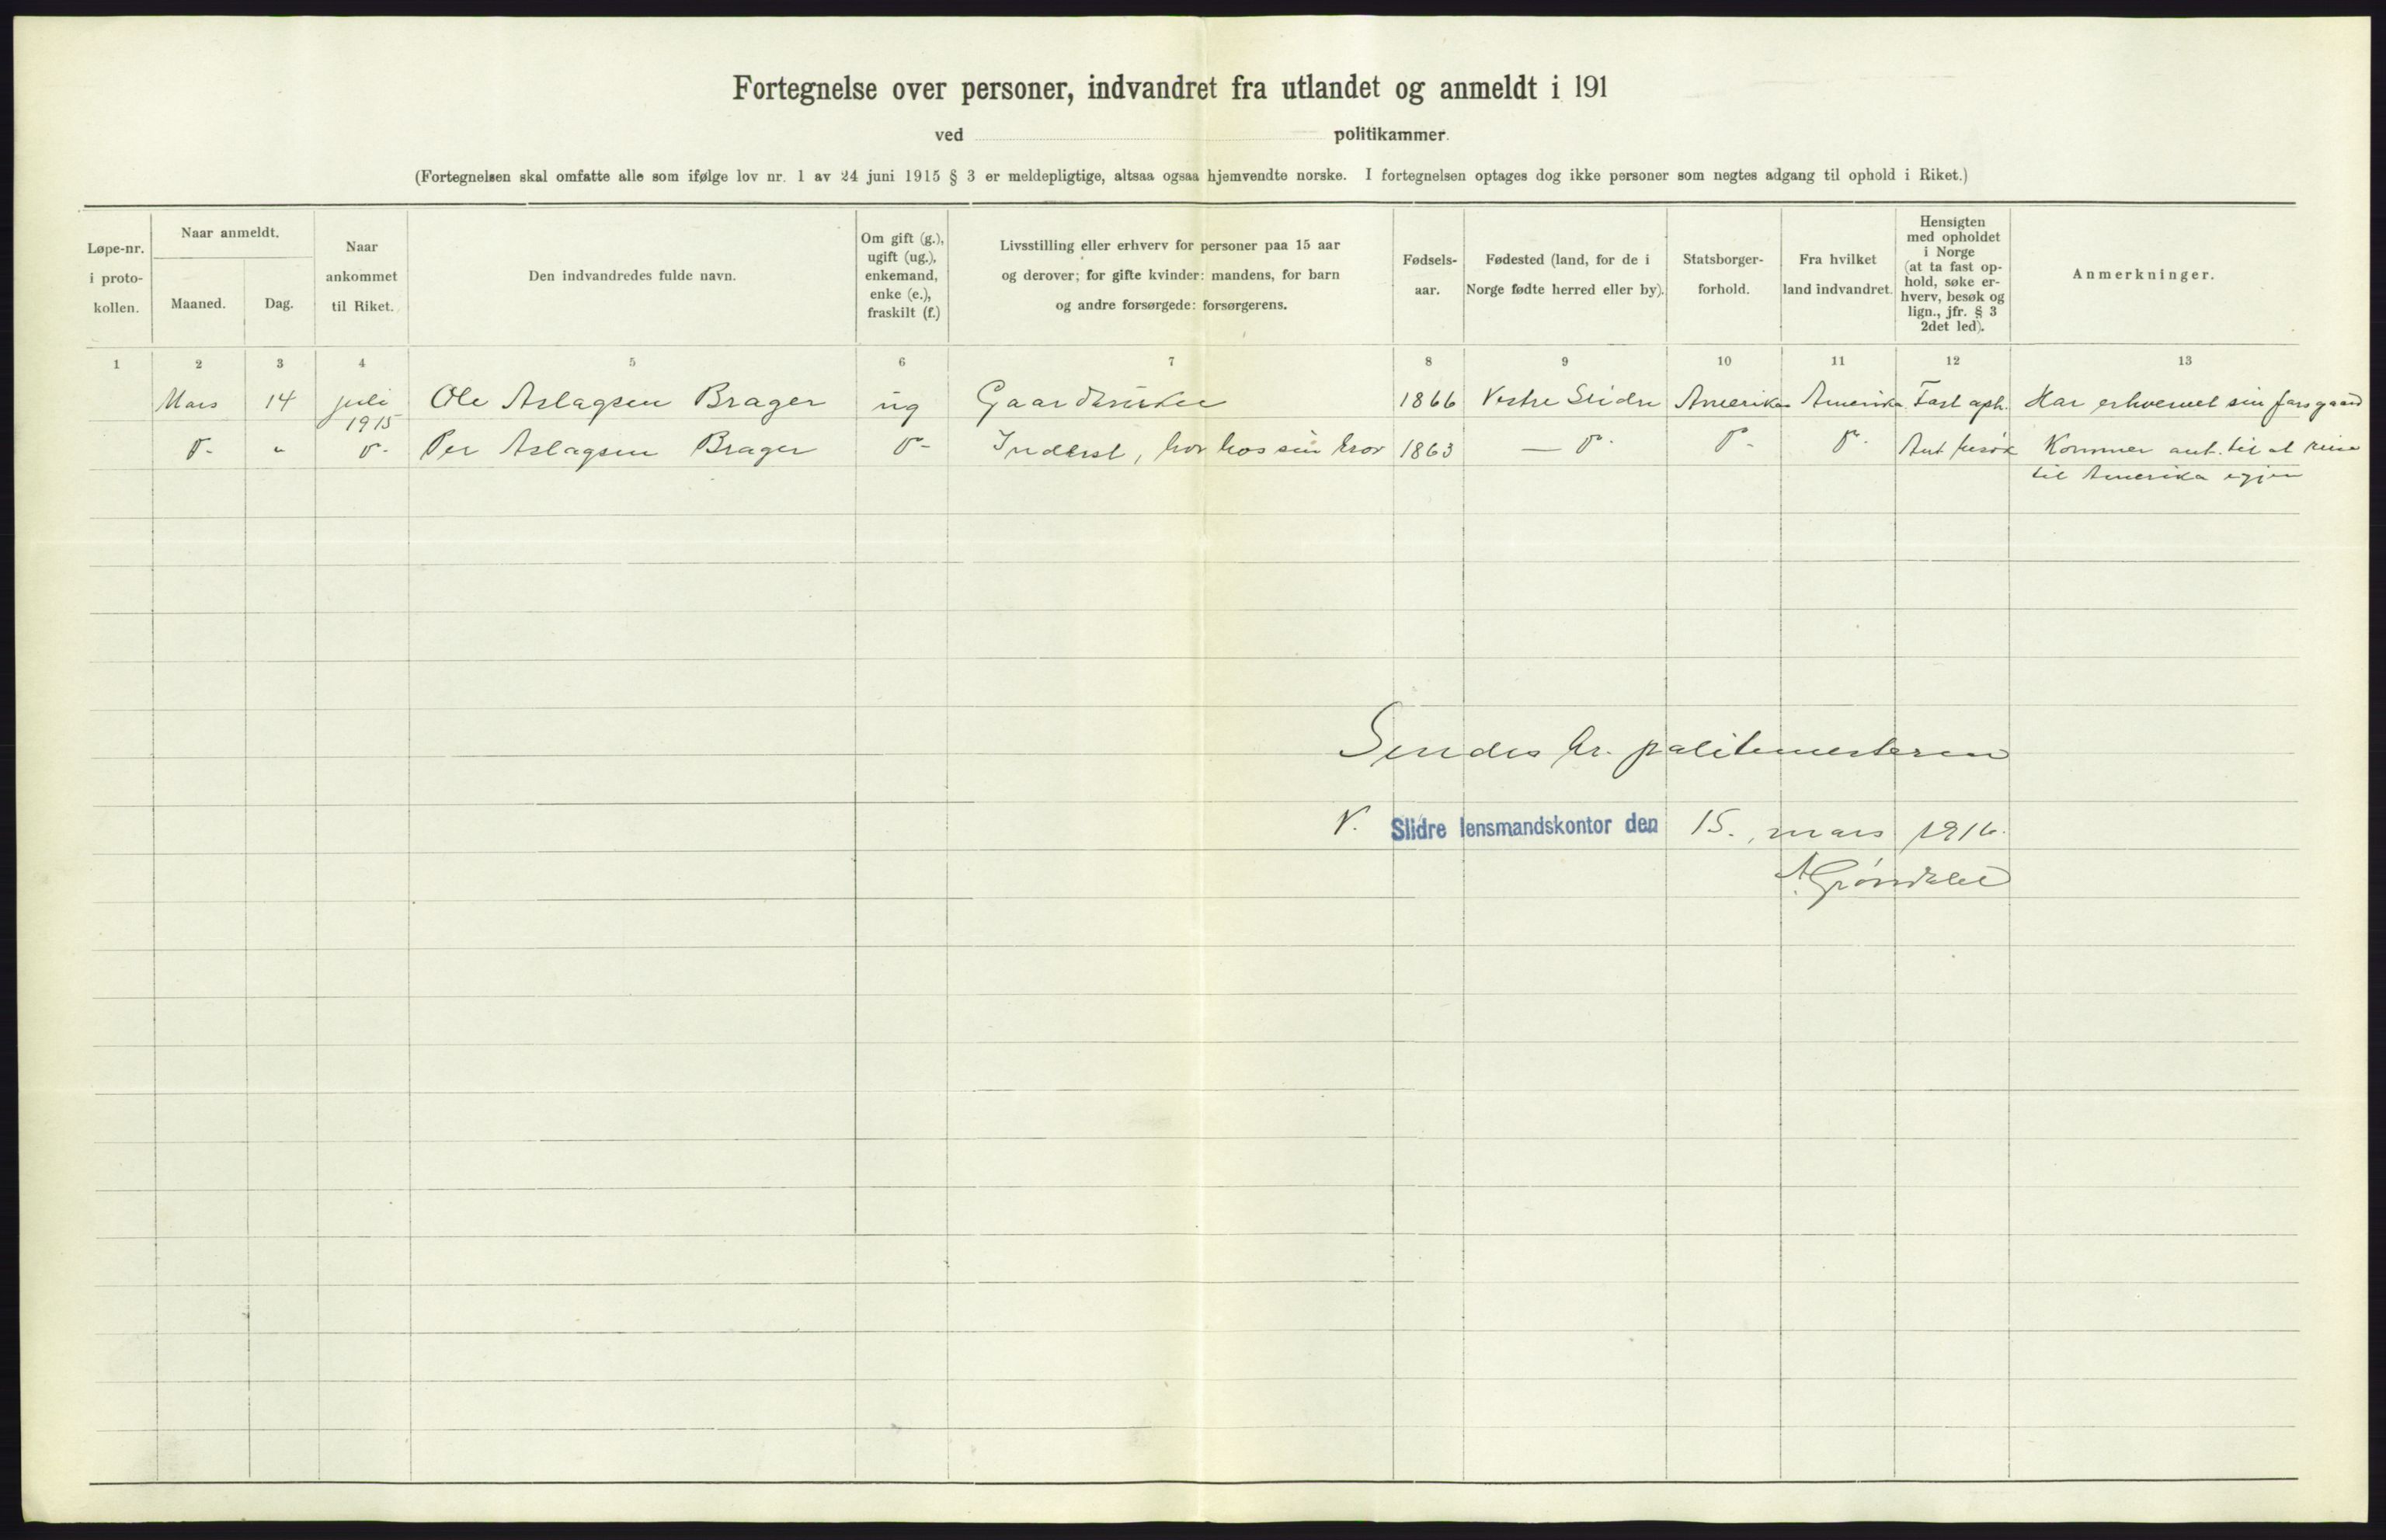 Fortegnelse over personer, indvandret fra utlandet og anmeldt i 191
ved politikammer.
(Fortegnelsen skal omfatte alle som ifølge lov nr. 1 av 24 juni 1915 § 3 er meldepligtige, altsaa ogsaa hjemvendte norske. I fortegnelsen optages dog ikke personer som negtes adgang til ophold i Riket.)
Løpe-nr.
i proto-
kollen.
Naar anmeldt.
Maaned.
Dag.
Naar
ankommet
til Riket.
Den indvandredes fulde navn.
Om gift (g.),
ugift (ug.),
enkemand,
enke (e.),
fraskilt (f.)
Livsstilling eller erhverv for personer paa 15 aar
og derover; for gifte kvinder: mandens, for barn
og andre forsørgede: forsørgerens.
Fødsels-
aar.
Fødested (land, for de i
Norge fødte herred eller by).
Statsborger-
forhold.
Fra hvilket
land indvandret.
Hensigten
med opholdet
i Norge
(at ta fast op-
hold, søke er-
hverv, besøk og
lign., jfr. § 3
2det led).
Anmerkninger.
1 2 3 4 5 6 7 8 9 10 11 12 13
Mars 14 juli 1915 Ole Aslagsen Brager ug Gaardbruker 1866 Vestre Slidre Amerika Amerika Fast oph. Har erhvervet sin fars gaard
D- " D- Per Aslagsen Brager D- Inderst, bor hos sin bror 1863 — D- D- D- Ant besøk Kommer ant. til at reise
til Amerika igjen
Sendes hr. politimesteren
V. Slidre lensmandskontor den 15. mars 1916.
A. Grøndalen